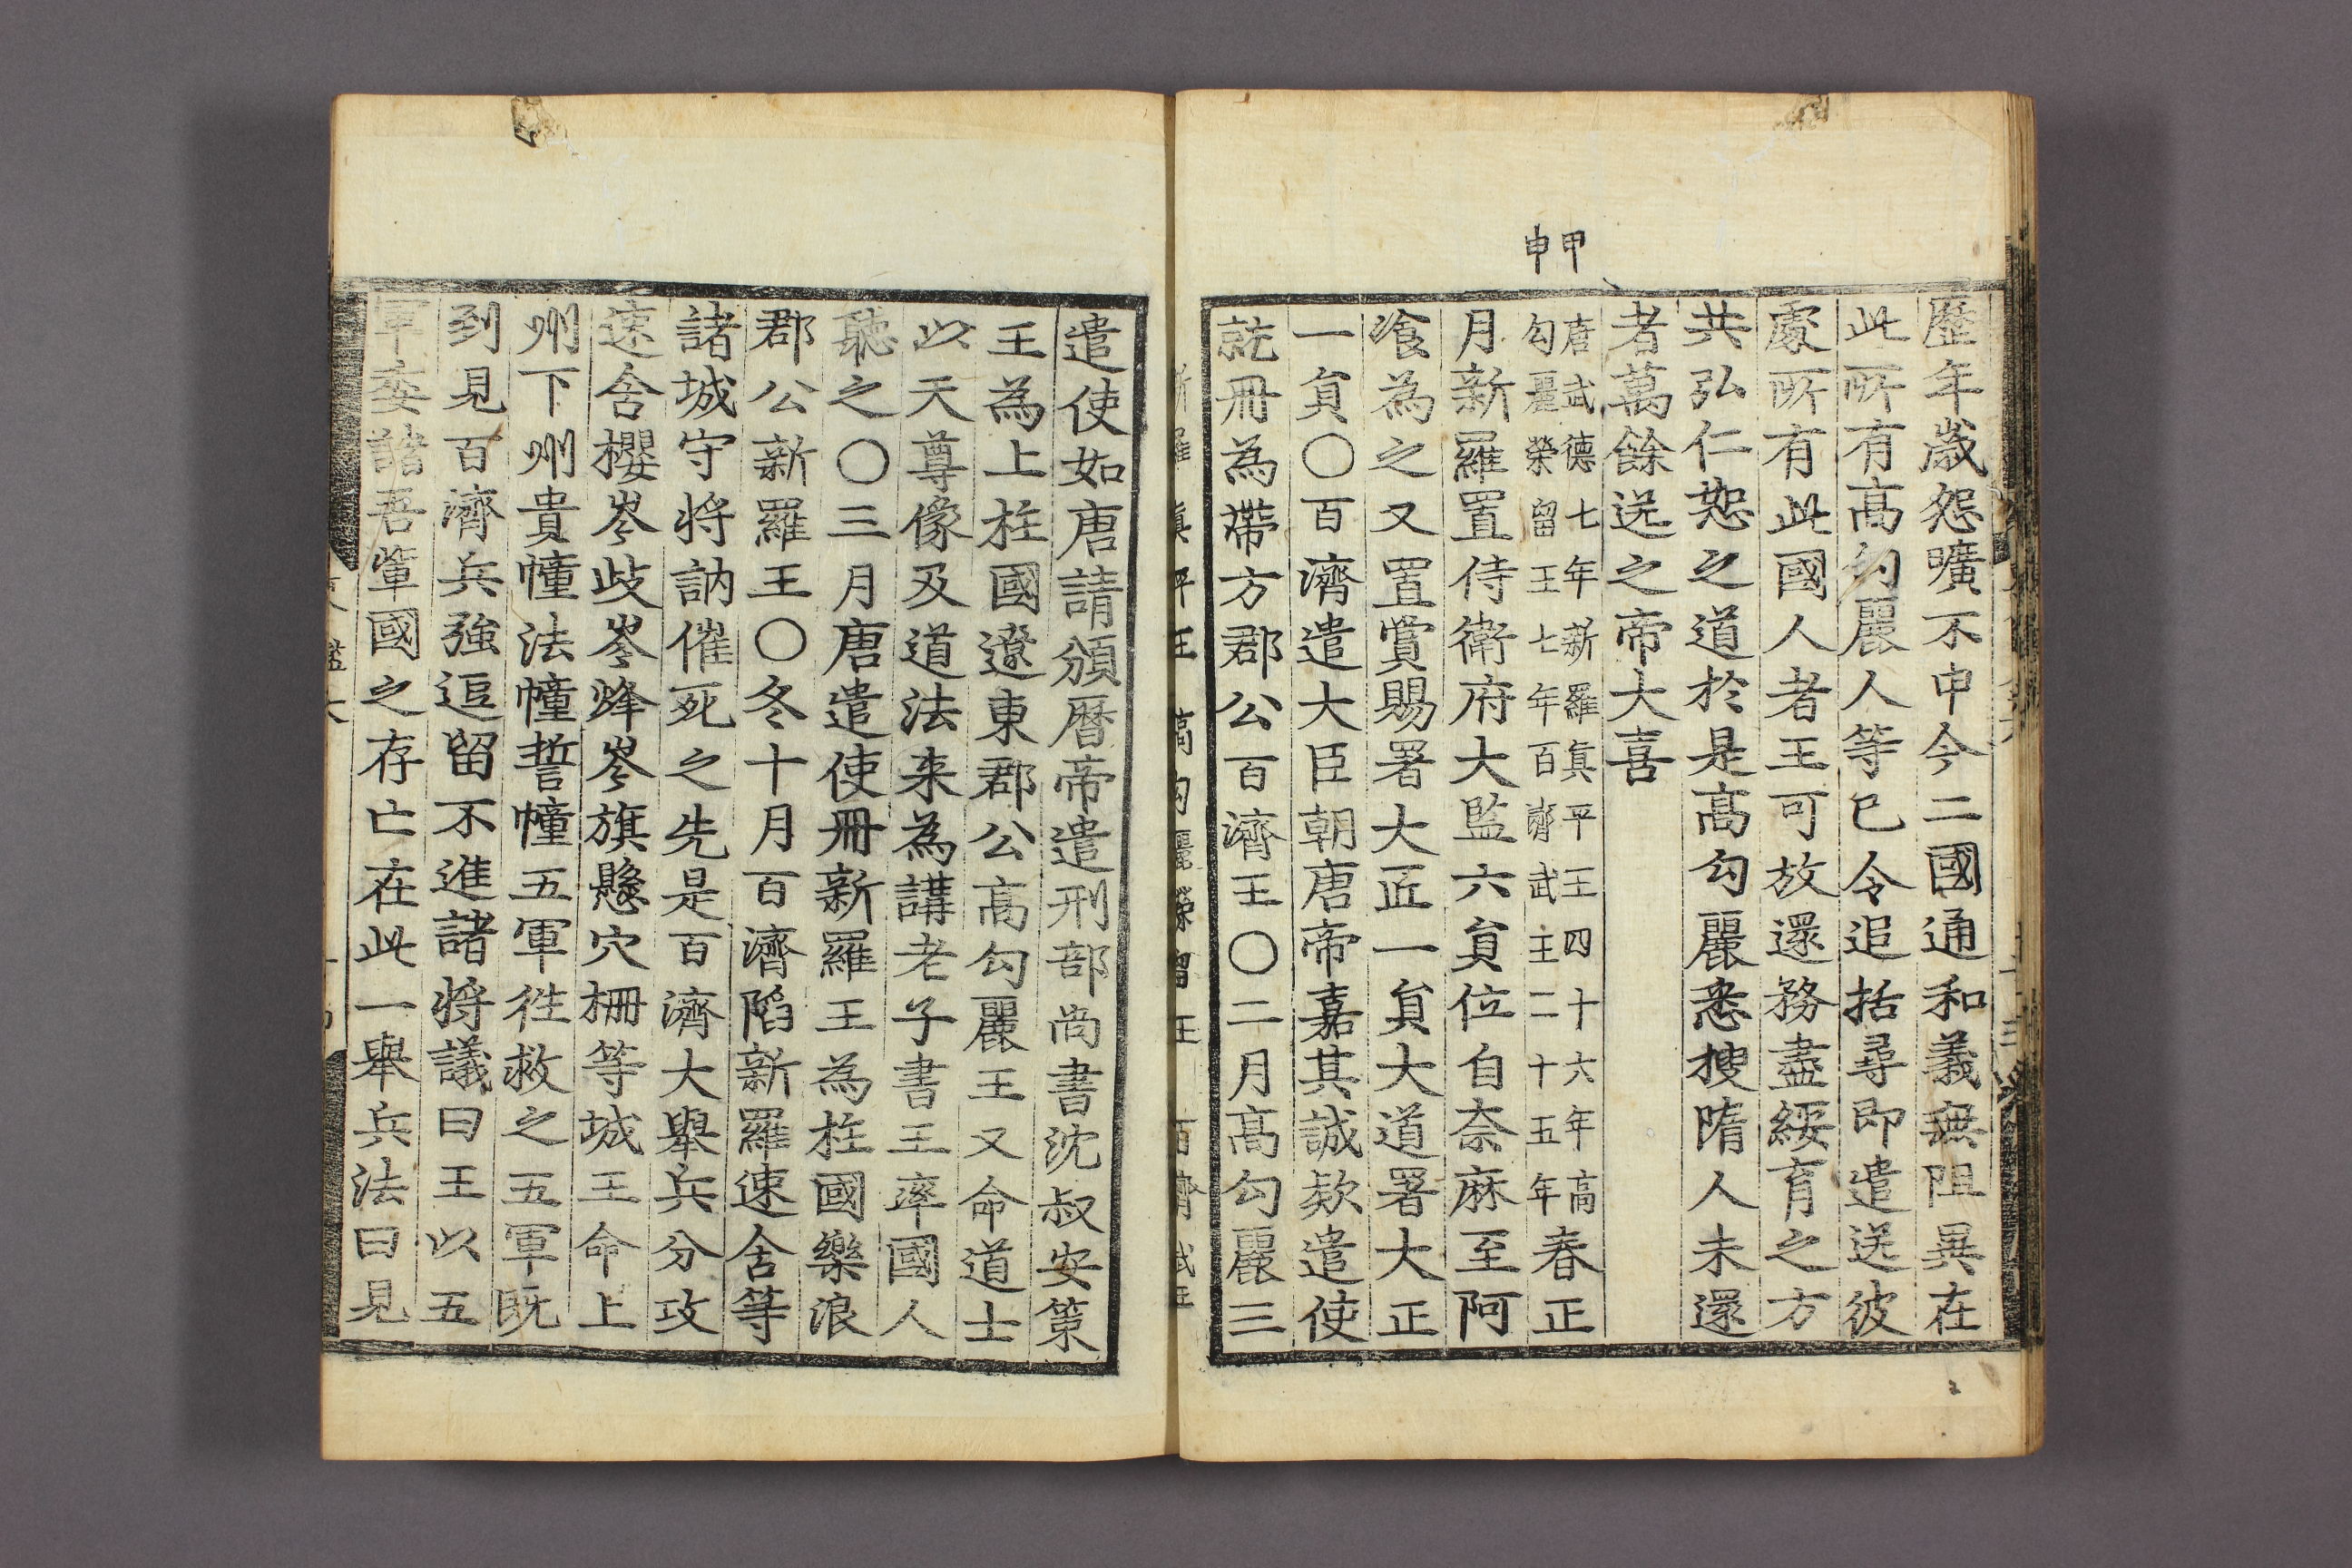 歷年歲怨曠不申今二國通和義無阻異在
此所有高勾麗人等已令追括尋即遣送彼
處所有此國人者王可放還務盡綏育之方
共弘仁恕之道於是高勾麗悉搜隋人未還
者萬餘送之帝大喜
甲申
唐武德七年新羅眞平王四十六年高
勾麗榮留王七年百濟武王二十五年
春正
月新羅置侍衛府大監六員位自奈麻至阿
飡為之又置賞賜署大匠一員大道署大正
一員〇百濟遣大臣朝唐帝嘉其誠欵遣使
就冊為帶方郡公百濟王〇二月高勾麗三
新羅 眞平王 高勾麗榮留王 百濟武王
遣使如唐請頒曆帝遣刑部尚書沈叔安策
王為上柱國遼東郡公高勾麗王又命道士
以天尊像及道法来為講老子書王率國人
聽之〇三月唐遣使冊新羅王為柱國樂浪
郡公新羅王〇冬十月百濟陷新羅速含等
諸城守将訥催死之先是百濟大舉兵分攻
速含櫻岑歧岑烽岑旗懸穴柵等城王命上
州下州貴幢法幢誓幢五軍徃救之五軍既
到見百濟兵強逗留不進諸将議曰王以五
軍委諸吾軰國之存亡在此一舉兵法曰見